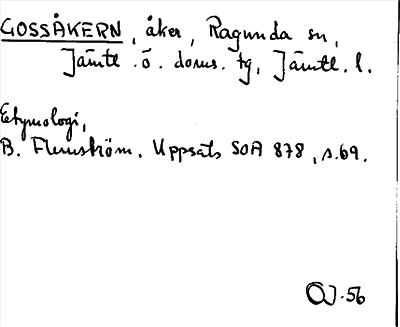 GOSSÅKERN, åker, Ragunda sn,
Jämtl. ö. doms. tg, Jämtl. l.
Etymologi,
B. Flemström. Uppsats SOA 878, s.69.
OJ.56